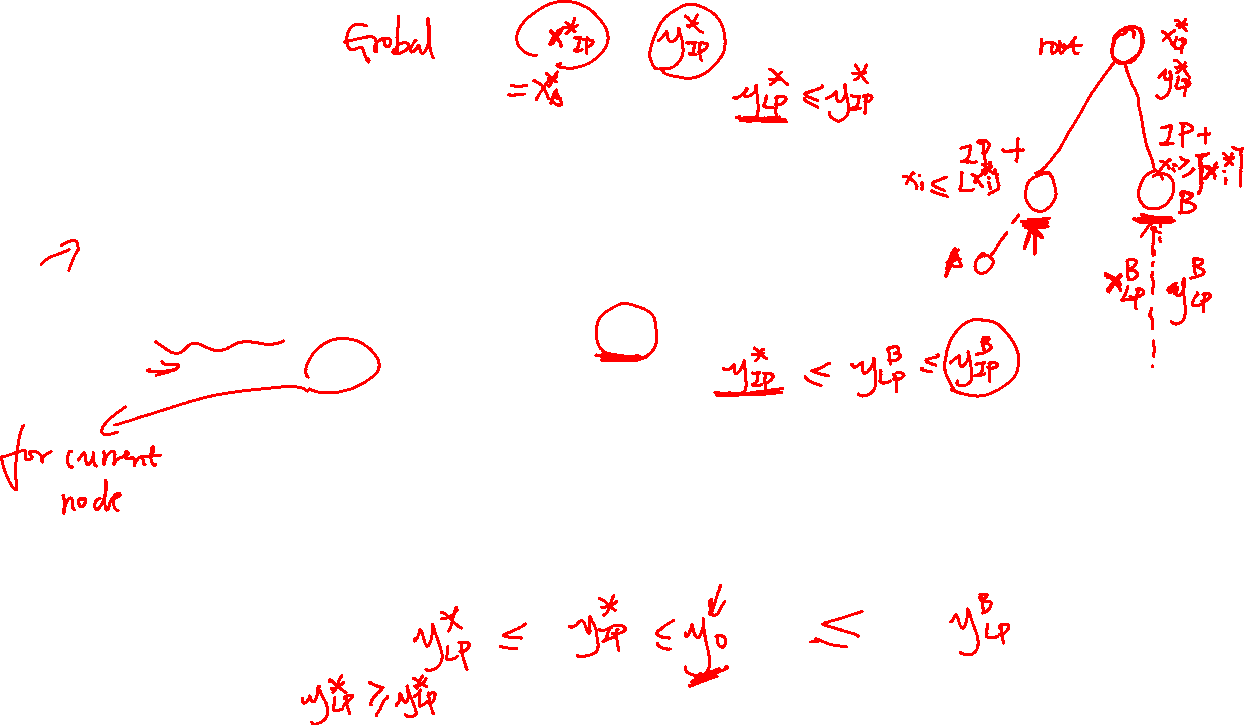 Grobal x*_IP y*_IP
= x*_A
y*_LP ≤ y*_IP
root x*_LP
y*_LP
IP +
x_i ≤ ⌊x*_i⌋
IP +
x_i ≥ ⌈x*_i⌉
B
A
x^B_LP y^B_LP
y*_IP ≤ y^B_LP ≤ y^B_IP
for current
node
y*_LP ≤ y*_IP ≤ y_0 ≤ y^B_LP
y*_LP ≥ y*_LP